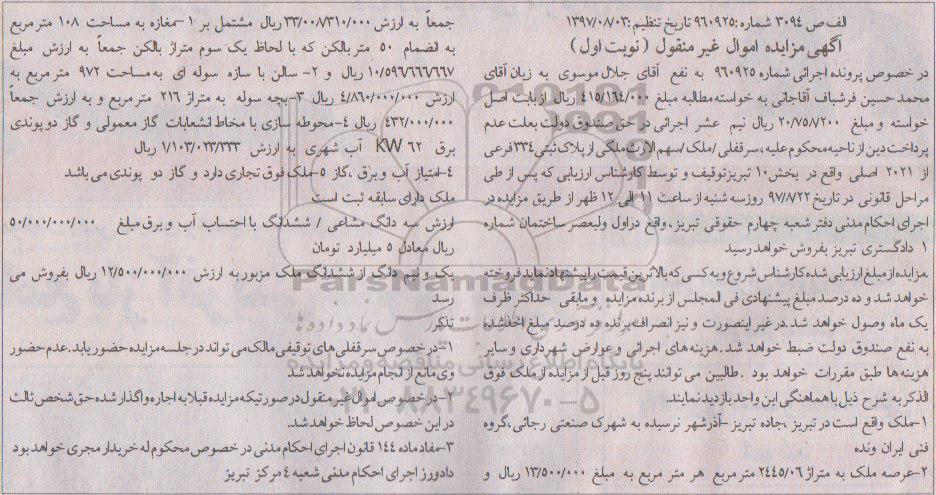 الف ص ۳۰۹۴ شماره: ۹۶۰۹۲۵ تاریخ تنظیم: ۱۳۹۷/۰۸/۰۳
آگهی مزایده اموال غیر منقول (نوبت اول)
در خصوص پرونده اجرائی شماره ۹۶۰۹۲۵ به نفع آقای جلال موسوی به زیان آقای
محمد حسین فرشباف آقاجانی به خواسته مطالبه مبلغ ۴۱۵/۱۶۴/۰۰۰ ریال از بابت اصل
خواسته و مبلغ ۲۰/۷۵۸/۲۰۰ ریال نیم عشر اجرائی در حق صندوق دولت بعلت عدم
پرداخت دین از ناحیه محکوم علیه، سرقفلی /ملک /سهم الارث ملکی از پلاک ثبتی ۳۳۴ فرعی
از ۲۰۲۱ اصلی واقع در بخش ۱۰ تبریز توقیف و توسط کارشناس ارزیابی که پس از طی
مراحل قانونی در تاریخ ۹۷/۸/۲۲ روز سه شنبه از ساعت ۱۱ الی ۱۲ ظهر از طریق مزایده در
اجرای احکام مدنی دفتر شعبه چهارم حقوقی تبریز، واقع در اول ولیعصر ساختمان شماره
۱ دادگستری تبریز بفروش خواهد رسید
.مزایده از مبلغ ارزیابی شده کارشناس شروع و به کسی که بالاترین قیمت را پیشنهاد نماید فروخته
خواهد شد و ده درصد مبلغ پیشنهادی فی المجلس از برنده مزایده و مابقی حداکثر ظرف
یک ماه وصول خواهد شد .در غیر اینصورت و نیز انصراف برنده ده درصد مبلغ اخذشده
به نفع صندوق دولت ضبط خواهد شد .هزینه های اجرائی و عوارض شهرداری و سایر
هزینه ها طبق مقررات خواهد بود .طالبین می توانند پنج روز قبل از مزایده از ملک فوق
الذکر به شرح ذیل با هماهنگی این واحد بازدید نمایند.
۱-ملک واقع است در تبریز ،جاده تبریز -آذرشهر نرسیده به شهرک صنعتی رجائی، گروه
فنی ایران ونده
۲-عرصه ملک به متراژ ۲۴۴۵/۰۶ متر مربع هر متر مربع به مبلغ ۱۳/۵۰۰/۰۰۰ ریال و
جمعاً به ارزش ۳۳/۰۰۸/۳۱۰/۰۰۰ ریال مشتمل بر ۱-مغازه به مساحت ۱۰۸ متر مربع
به انضمام ۵۰ متر بالکن که با لحاظ یک سوم متراژ بالکن جمعاً به ارزش مبلغ
۱۰/۵۹۶/۶۶۶/۶۶۷ ریال و ۲- سالن با سازه سوله ای به مساحت ۹۷۲ متر مربع به
ارزش ۴/۸۶۰/۰۰۰/۰۰۰ ریال ۳-بچه سوله به متراژ ۲۱۶ متر مربع و به ارزش جمعاً
۴۳۲/۰۰۰/۰۰۰ ریال ۴-محوطه سازی با مخاط انشعابات گاز معمولی و گاز دو پوندی
برق ۶۲ KW آب شهری به ارزش ۱/۱۰۳/۰۲۳/۳۳۳ ریال
۴-امتیاز آب و برق ،گاز ۵-ملک فوق تجاری دارد و گاز دو پوندی می باشد
ملک دارای سابقه ثبت است
ارزش سه دانگ مشاعی / ششدانگ با احتساب آب و برق مبلغ ۵۰/۰۰۰/۰۰۰/۰۰۰
ریال معادل ۵ میلیارد تومان
یک و نیم دانگ از ششدانگ ملک مزبور به ارزش ۱۲/۵۰۰/۰۰۰/۰۰۰ ریال بفروش می
رسد
تذکر:
۱-در خصوص سرقفلی های توقیفی مالک می تواند در جلسه مزایده حضور یابد .عدم حضور
وی مانع از انجام مزایده نخواهد شد
۲-در خصوص اموال غیر منقول در صورتیکه مزایده قبلا به اجاره واگذار شده حق شخص ثالث
در این خصوص لحاظ خواهد شد.
۳-مفاد ماده ۱۴۴ قانون اجرای احکام مدنی در خصوص محکوم له خریدار مجری خواهد بود
دادورز اجرای احکام مدنی شعبه ۴ مرکز تبریز
ParsNamadData
پایگاه اطلاع رسانی مناقصه و مزایده
۰۲۱-۸۸۳۴۹۶۷۰-۵